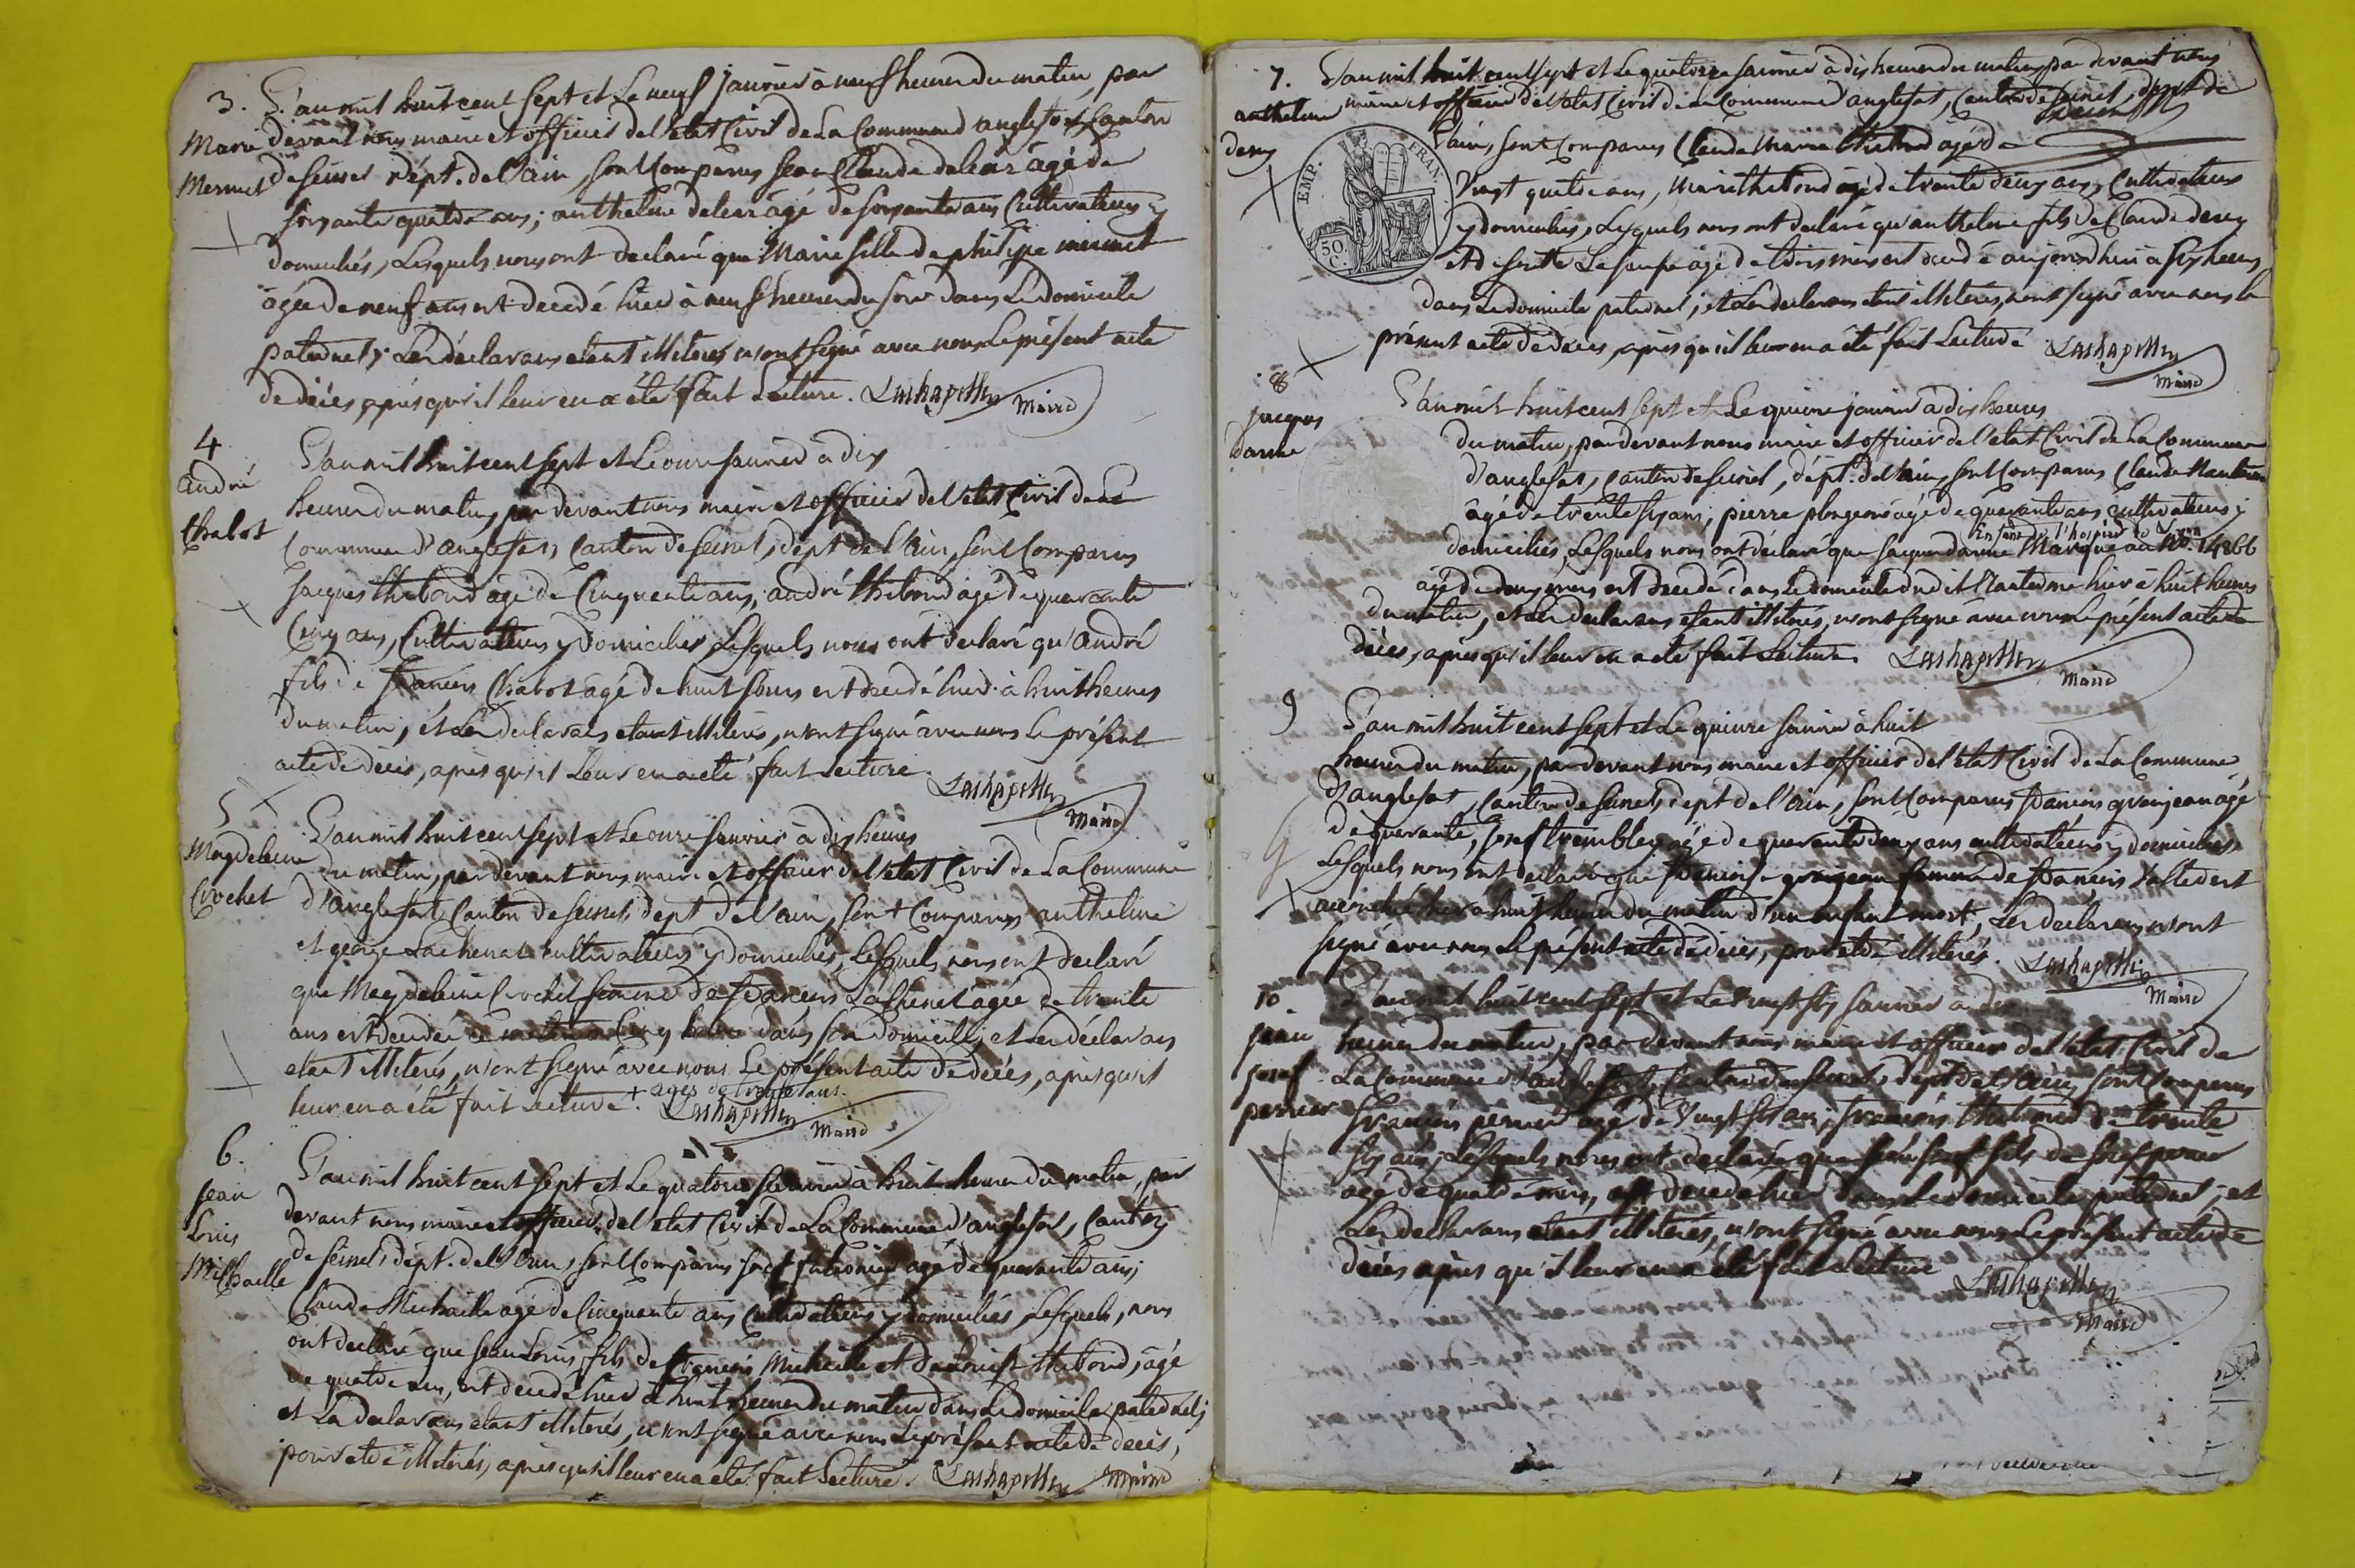 3.
Marie
Mermet
L'an mil huit cent sept et le neuf janvier à neuf heures du matin, par
devant nous maire et officier de l'etat Civil de la Commune d'anglefort Canton
de seissel dépt. de l'ain, sont Comparus jean Claude deléaz âgé de
soixante quatre ans; anthelme deleaz âgé de soixante ans Cultivateurs y
domiciliés, Lesquels nous ont declaré que Marie fille de philipe mermet
âgée de neuf ans est decedé hier à neuf heures du soir dans Le domicile
paternel; Les déclarans etant illiterés n'ont signé avec nous Le présent acte
de décès, après qu'il leur en a été fait Lecture. Lachapelle Maire
4
andré
Chabot
L'an mil huit cent sept et Le onze janvier à dix
heures du matin, par devant nous maire et officier de l'etat Civil de La
Commune d'anglefort, Canton de seissel, dépt de l'ain, sont Comparus
jacques thiboud âgé de Cinquante ans, andré thiboud âgé de quarante
Cinq ans, Cultivateurs y domiciliés, Lesquels nous ont declaré qu'andré
fils de francois Chabot âgé de huit jours est decedé hier à huit heures
du matin, et Les declarans etant illiterés, n'ont signé avec nous Le présent
acte de décès, après qu'il Leur en a eté fait Lecture. Lachapelle Maire
5
Magdeleine
Crochet
L'an mil huit cent sept et Le onze janvier à dix heures
du matin, par devant nous maire et officier de l'etat Civil de La Commune
d'anglefort Canton de seissel, dept de l'ain, sont + Comparus anthelme
et george Lachenal cultivateurs y domiciliés, Lesquels nous ont declaré
que Magdeleine Crochet femme de francois Lachenal âgée de trente
ans est decedée ce matin à Cinq heures dans son domicille; et Les déclarans
etant illiterés, n'ont signé avec nous Le présent acte de décès, après qu'il
leur en a été fait Lecture. + agés de trente ans.
Lachapelle Maire
6.
jean
Louis
Michaille
L'an mil huit cent sept et Le quatorze janvier à huit heures du matin, par
devant nous maire et officier de l'etat Civil de La Commune d'anglefort, Canton
de seissel, dépt. de l'ain, sont Comparus josef âgé de quarante ans;
Claude Michaille âgé de Cinquante ans Cultivateurs y domiciliés, Lesquels, nous
ont declaré que jean Louis fils de francois Michaille et de Louise thiboud, âgé
de quatre ans, est decedé hier à huit heures du matin dans Le domicile paternel;
et Les declarans etant illiterés, n'ont signé avec nous Le présent acte de décès,
pour etre illiterés, après qu'il leur en a eté fait Lecture. Lachapelle Maire
7.
anthelme
derey
L'an mil huit cent sept et Le quatorze janvier à dix heures du matin par devant nous
maire et officier de l'etat Civil de La Commune d'anglefort, Canton de seissel, dept de
L'ain, sont Comparus Claude Marie thiboud âgé de
Vingt quatre ans, Marie thiboud âgé de trente deux ans, Cultivateurs
y domiciliés, Lesquels nous ont declaré qu'anthelme fils de Claude derey
et de josette âgé de trois mois est decedé aujourd'hui à six heures
dans Le domicile paternel; et Les declarans etant illiterés, n'ont signé avec nous le
présent acte de décès, après qu'il leur en a été fait Lecture Lachapelle
Maire
EMP. FRAN.
50. C.
8
jacques
danne
L'an mil huit cent sept et Le quinze janvier à dix heures
du matin, par devant nous maire et officier de l'etat Civil de La Commune
d'anglefort, Canton de seissel, dépt. de l'ain, sont Comparus Claude
âgé de trente six ans, pierre âgé de quarante ans cultivateurs y
Enfant de l'hospice de Lyon
domiciliés, Lesquels nous ont declaré que jacques danne Marqué au No. 14866
âgé de deux mois est decedé dans Le domicile dudit hier à huit heures
du matin, et Les declarans etant illiterés, n'ont signé avec nous Le présent acte de
décès, après qu'il leur en a eté fait Lecture. Lachapelle
Maire
9
L'an mil huit cent sept et Le quinze janvier à huit
heures du matin, par devant nous maire et officier de l'etat Civil de La Commune
d'anglefort, Canton de seissel, dept de l'ain, sont Comparus francois grosjean agé
de quarante, josef trembley âgé de quarante deux ans cultivateurs y domiciliés,
Lesquels nous ont declaré que femme de francois est
accouchée hier à huit heures du matin d'un enfant mort; Les declarans n'ont
signé avec nous Le présent acte de décès, pour etre illiterés. Lachapelle
Maire
10
jean
josef
perrier
L'an mil huit cent sept et Le vingt six janvier à dix
heures du matin, par devant nous maire et officier de l'etat Civil de
La Commune d'anglefort, Canton de seissel, dept de l'ain, sont Comparus
francois perrier âgé de Vingt six ans, francois thiboud de trente
six ans, Lesquels nous ont declaré que jean josef fils de josef perrier
âgé de quatre mois, est decedé hier dans Le domicile paternel; et
Les declarans etant illiterés, n'ont signé avec nous Le présent acte de
décès après qu'il leur en a été fait Lecture Lachapelle
Maire